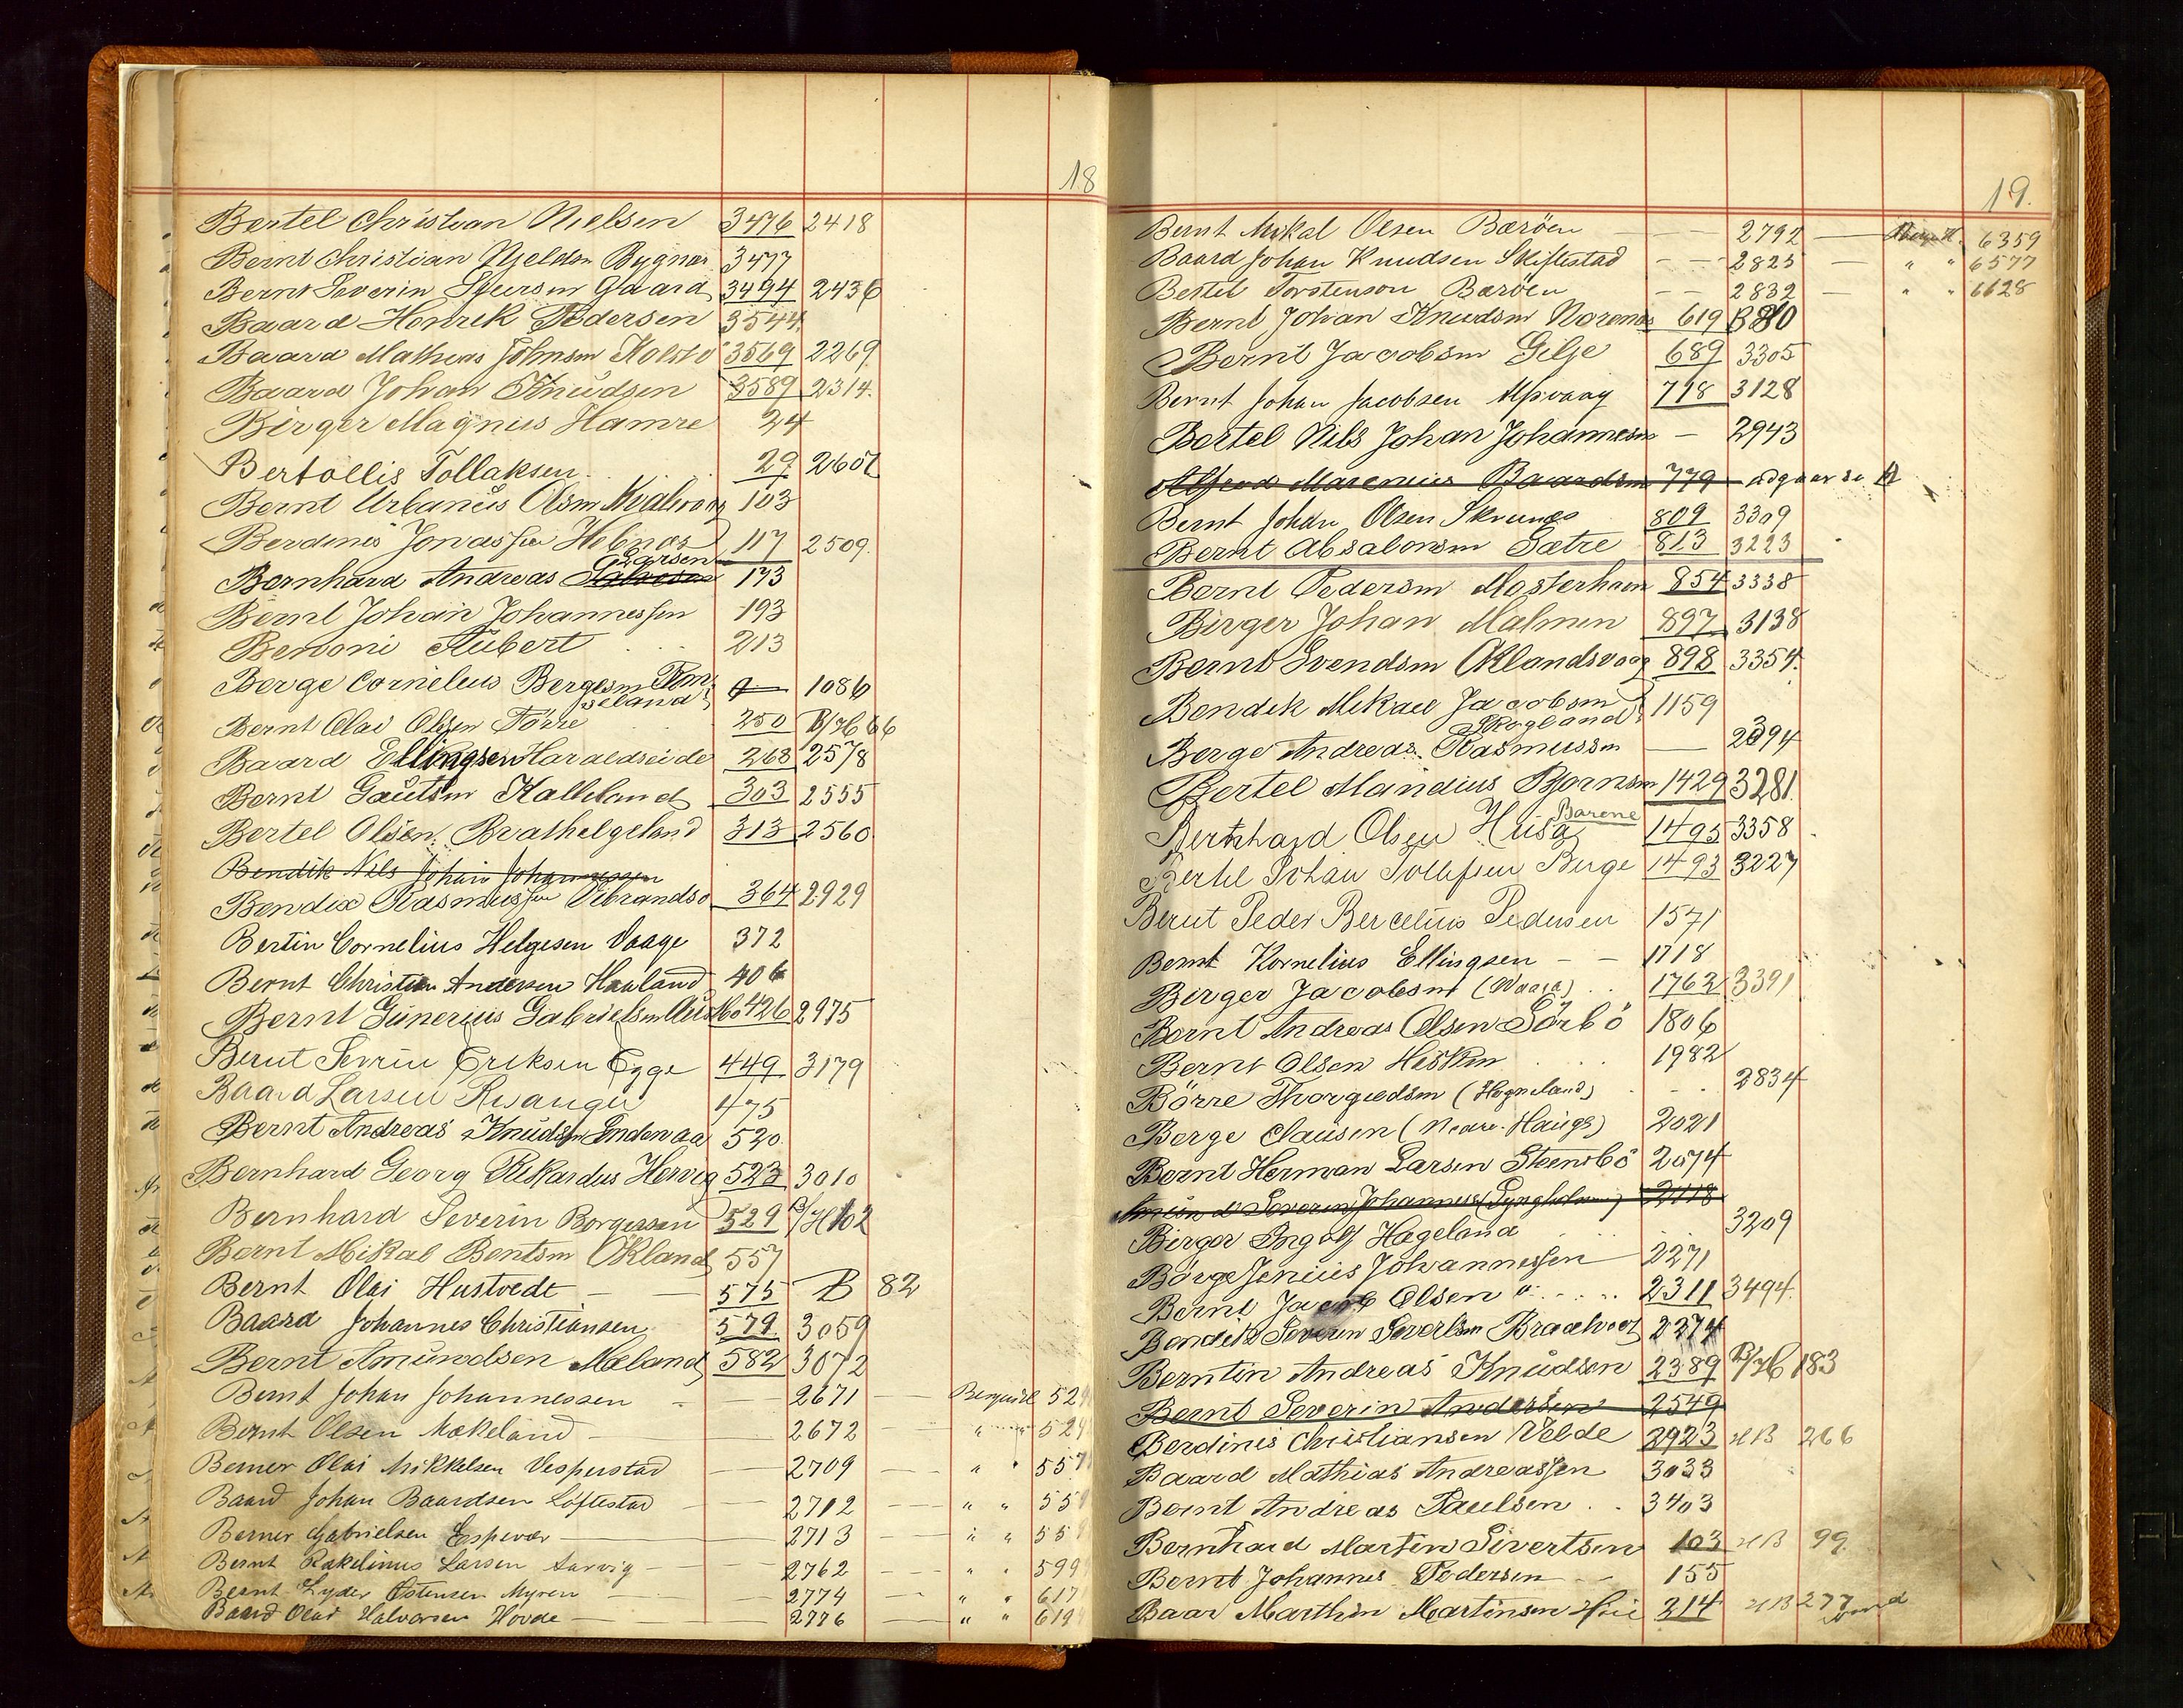 18
Bertel Christian Nielsen 3476 2418
Bernt Christian Njeldsen Bygnes 3477
Bernt Severin Gaard 3494 2436
Baard Henrik Pedersen 3544
Baard Mathias Johnsen Kolstø 3569 2269
Baard Johan Knudsen 3589 2314.
Birger Magnus Hamre 24
Bertollis Tollaksen 29 2607
Bernt Urbanus Olsen 103
Berdinis Jonassen Hebnes 117 2509.
Larsen
Bernhard Andreas 173
Bernt Johan Johannessen 193
Benoni Aubert 213
Berge Cornelius Bergesen 1086
Bernt Olai Olsen Førre 250 B/H 66
Baard Ellingsen Haraldseide 268 2578
Bernt Gautsen Kalleland 303 2555
Bertel Olsen Brathelgeland 313 2560
Bendik Nils Johan Johannessen
Bendix Rasmussen Vibrandsø 364 2929
Bertin Cornelius Helgesen Vaage 372
Bernt Christian Andersen Haaland 406
Bernt Gunerius Gabrielsen 426 2975
Bernt Sevrin Eriksen Egge 449 3179
Baard Larsen 475
Bernt Andreas Knudsen 520
Bernhard Georg Rikardus Hervig 523 3010
Bernhard Severin Borgersen 529 B/H 102
Bernt Mikal Bentsen Økland 557
Bernt Olai Hustvedt 575 B 82
Baard Johannes Christiansen 579 3059
Bernt Amundsen Mæland 582 3072
Bernt Johan Johannessen — 2671 — 52
Bernt Olsen Mækeland — 2672 " " 524
Berner Olai Mikkelsen Vespestad — 2709 — " " 557
Baard Johan Baardsen Løftestad — 2712 — " " 559
Berner Gabrielsen Espevær — 2713 — " " 559
Bernt Rakelinus Larsen — 2762 — " " 599
Bernt Lyder Østensen Myren — 2774 — " " 617
Baard Olai Halvorsen Hovde — 2776 — " " 619
19.
Bernt Mikal Olsen Børøen — 2792 — 6359
Baard Johan Knudsen Skiftestad — 2825 — " " 6577
Bertel Torstenson Børøen — 2832 — " " 6628
Bernt Johan Knudsen 619
Bernt Jacobsen Gilje 689 3305
Bernt Johan Jacobsen Alpvaag 718 3128
Bertel Nils Johan Johannesen — 2943
Alfred Marenius Baardsen 779 — udgaar se A
Bernt Johan Olsen Skrunes 809 3309
Bernt Absalonsen Sætre 813 3223
Bernt Pedersen Mosterhavn 854 3338
Birger Johan Malmen 897 3138
Bernt Svendsen Ølandsvaag 898 3354.
Bendik Mikael Jacobsen 1159
Skogland
Berge Andreas Rasmussen — 94
Bertel Mandius Bjornsen 1429 3281
Barene
Bernhard Olsen Husø 1495 3358
Bertel Johan Tollefsen Berge 1493 3227
Bernt Peder Bercelius Pedersen 1571
Bernt Kornelius Ellingsen — — 1718
Berger Jacobsen (Waage) 1762 3391
Bernt Andreas Olsen Sørbø 1806
Bernt Olsen 1982
Børre Thorgiedsen (Hegneland) 2834
Berge Clausen (Nedre Hauge) 2021
Bernt Herman Larsen Steensbø 2074
Severin Johannes 2118
Birger Ingolf Hageland 3209
Børge Jenius Johannessen 2271
Bernt Jacob Olsen 2311 3494.
Bendik Severin Severtsen 2274
Berntin Andreas Knudsen 2389 B/H 183
Bernt Severin Andersen 2549
Berdinis Christiansen Velde 2923 HB 266
Baard Mathias Andreassen 3033
Bernt Andreas Paulsen 3403
Bernhard Martin Sivertsen 103 HB 99.
Bernt Johannes Pedersen 155
Baar Marthin Martinsen 214 HB 277